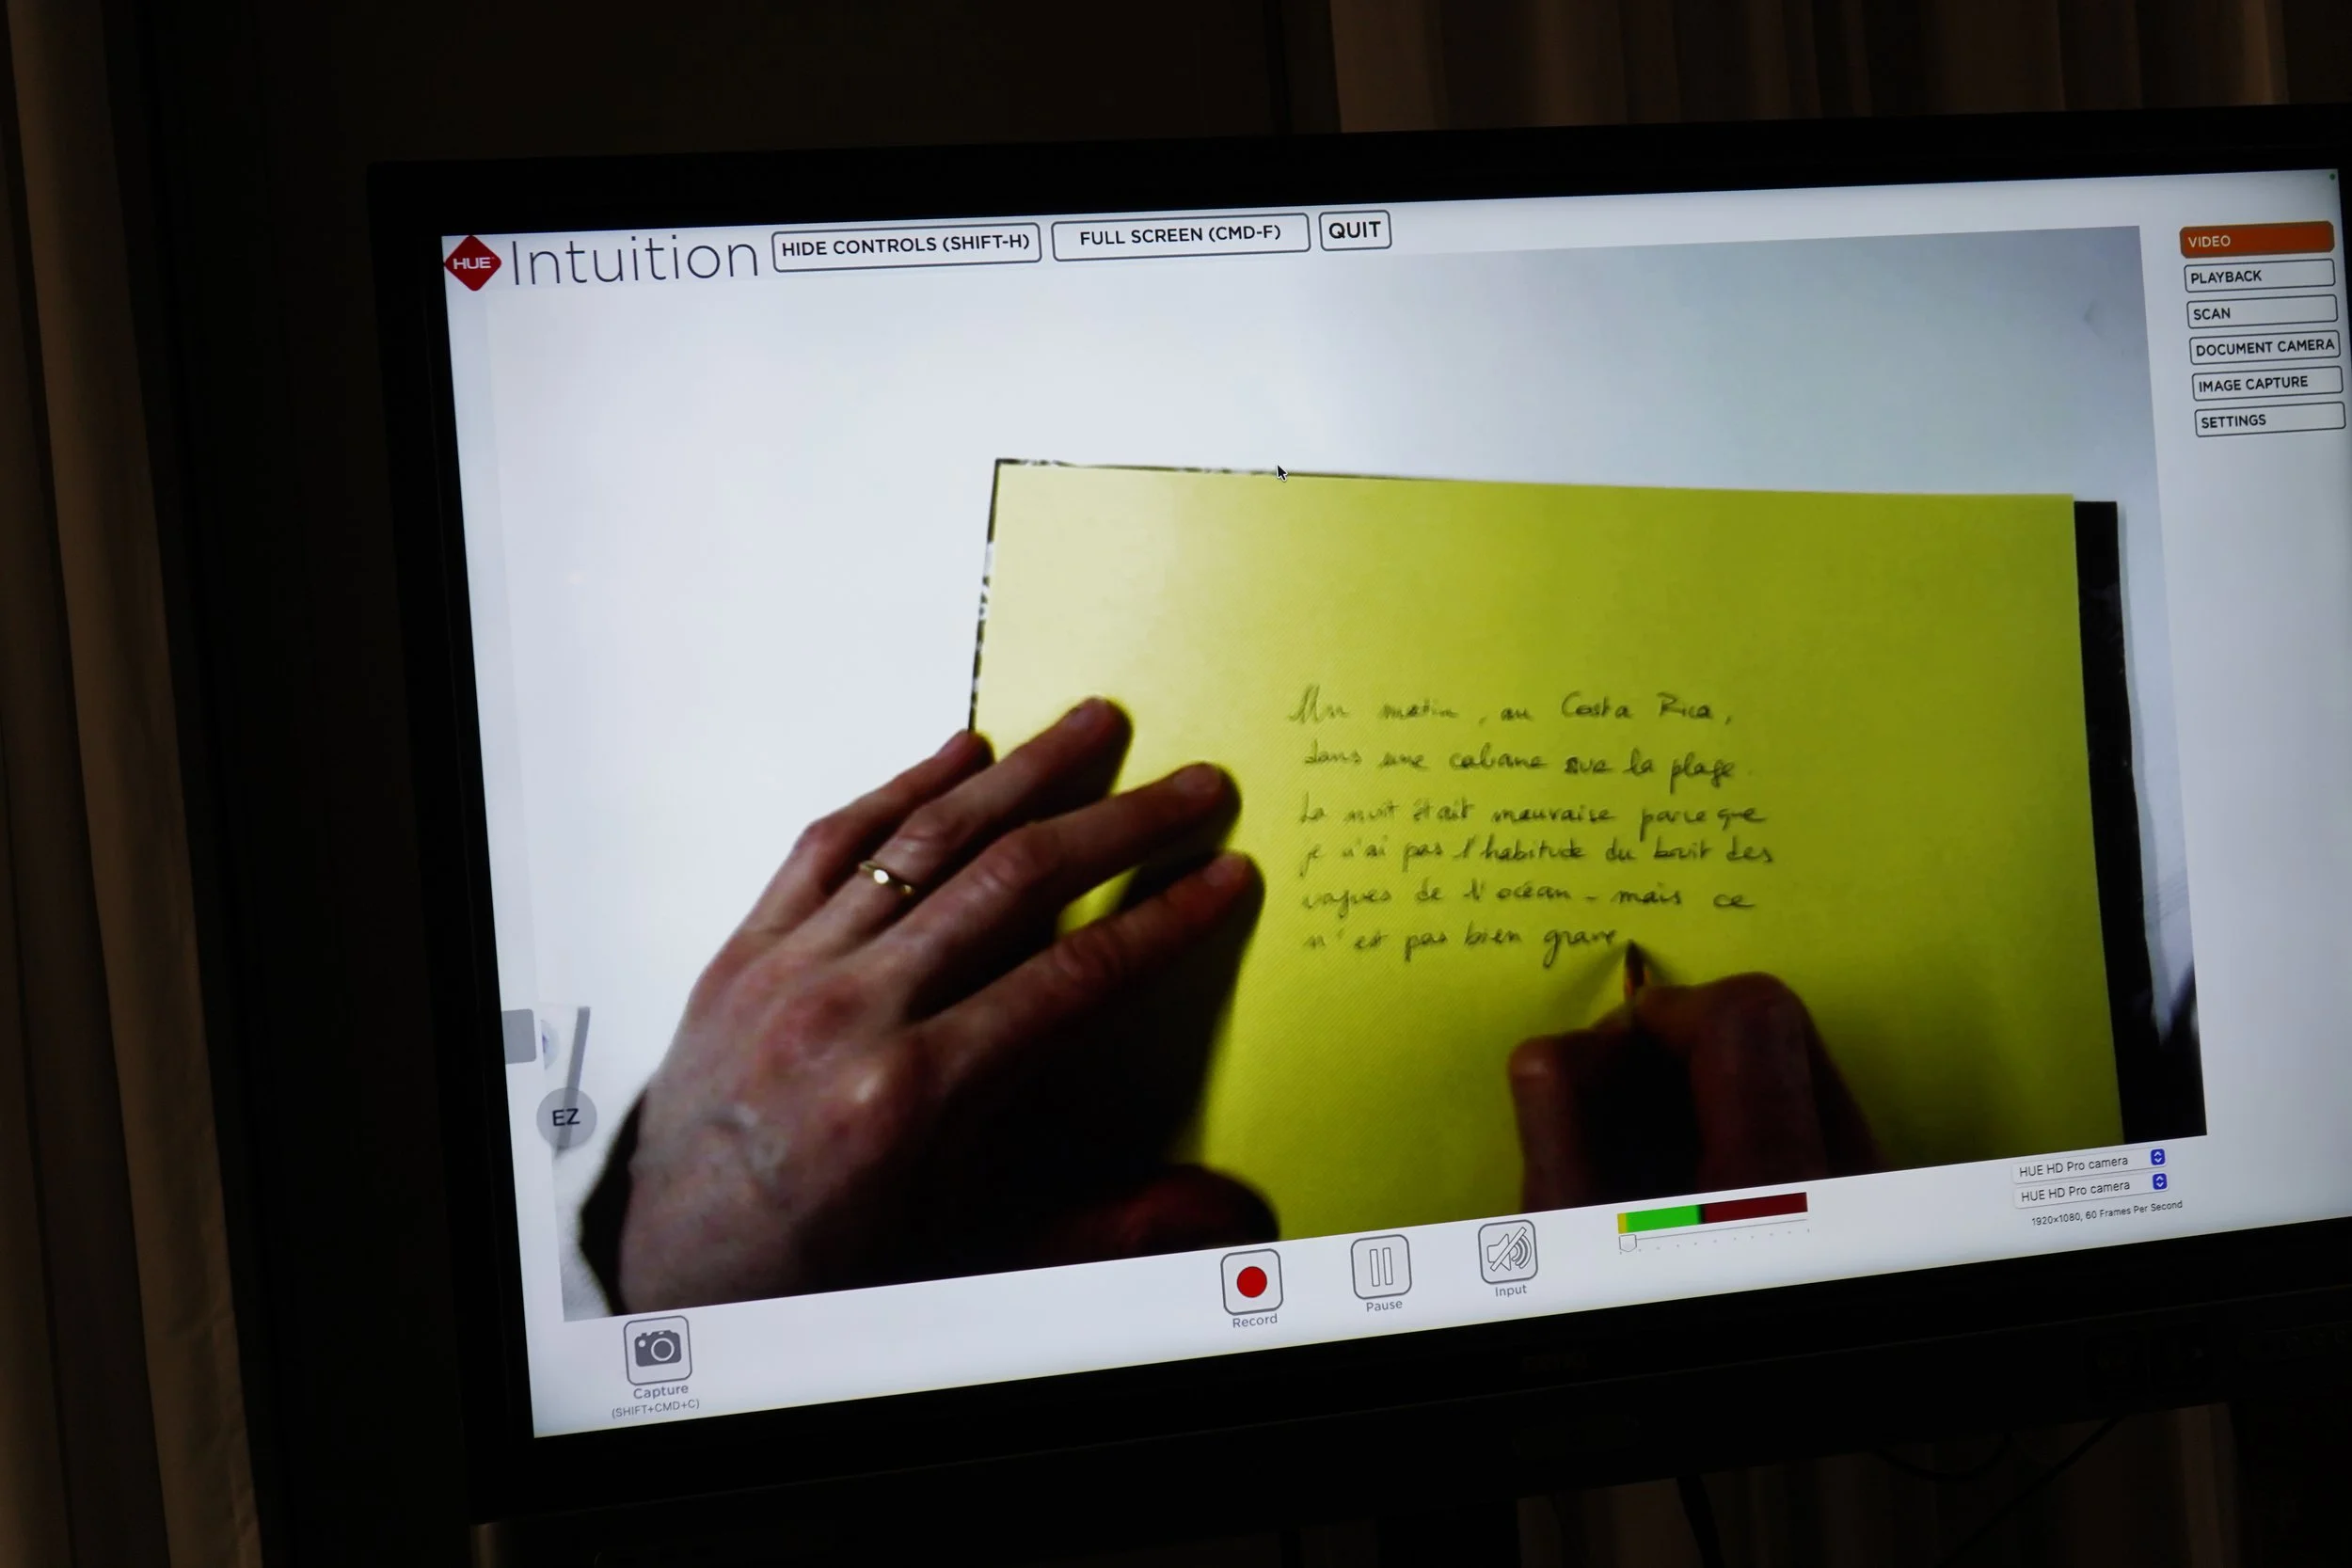 HUE Intuition
HIDE CONTROLS (SHIFT-H)
FULL SCREEN (CMD-F)
QUIT
VIDEO
PLAYBACK
SCAN
DOCUMENT CAMERA
IMAGE CAPTURE
SETTINGS
Un matin, au Costa Rica,
dans une cabane sur la plage.
La nuit était mauvaise parce que
je n'ai pas l'habitude du bruit des
vagues de l'océan - mais ce
n'est pas bien grave
EZ
HUE HD Pro camera
HUE HD Pro camera
1920x1080, 60 Frames Per Second
Record
Pause
Input
Capture
(SHIFT+CMD+C)